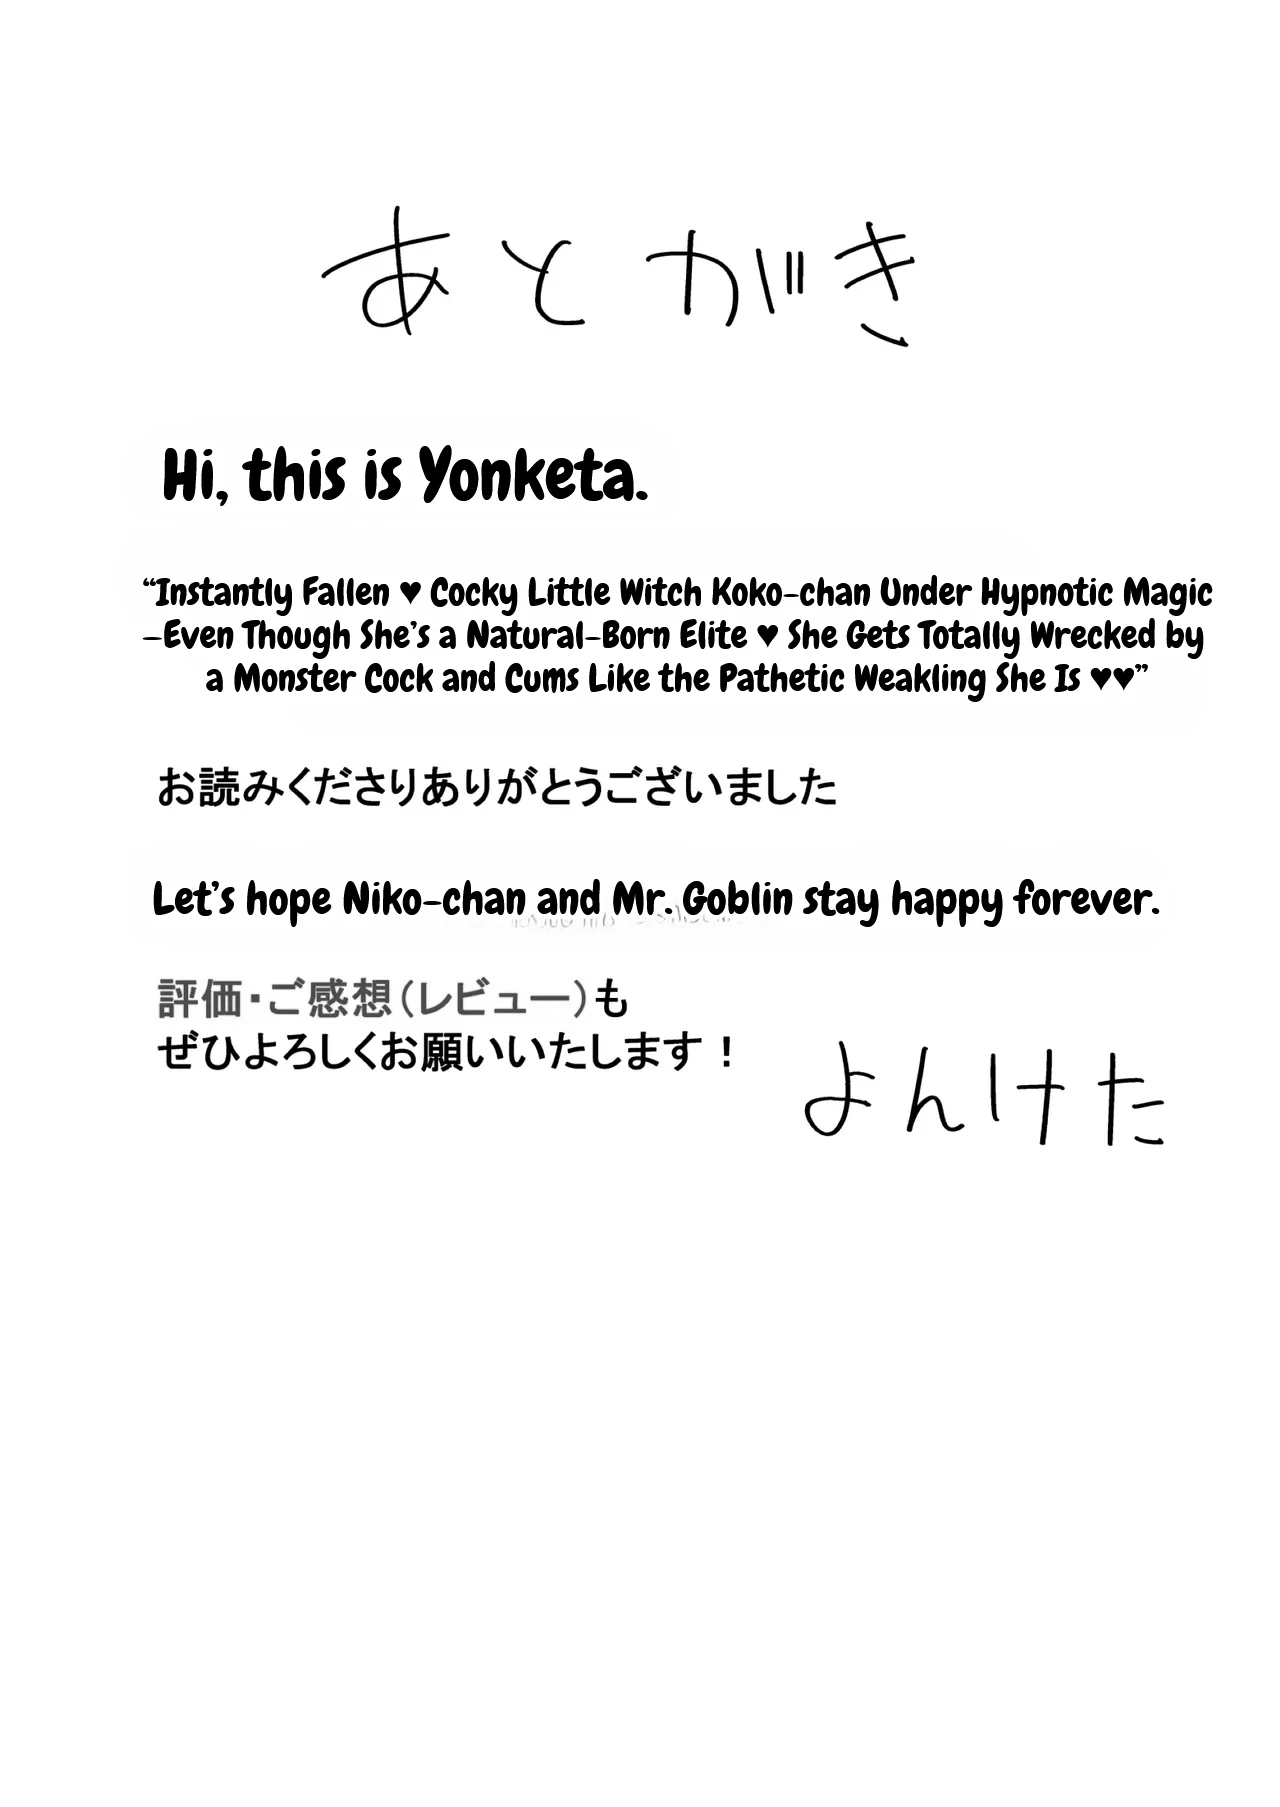 あとがき
Hi, this is Yonketa.
“Instantly Fallen ♥ Cocky Little Witch Koko-chan Under Hypnotic Magic
-Even Though She's a Natural-Born Elite ♥ She Gets Totally Wrecked by
a Monster Cock and Cums Like the Pathetic Weakling She Is ♥♥”
お読みくださりありがとうございました
Let's hope Niko-chan and Mr. Goblin stay happy forever.
評価・ご感想（レビュー）も
ぜひよろしくお願いいたします！
よんけた